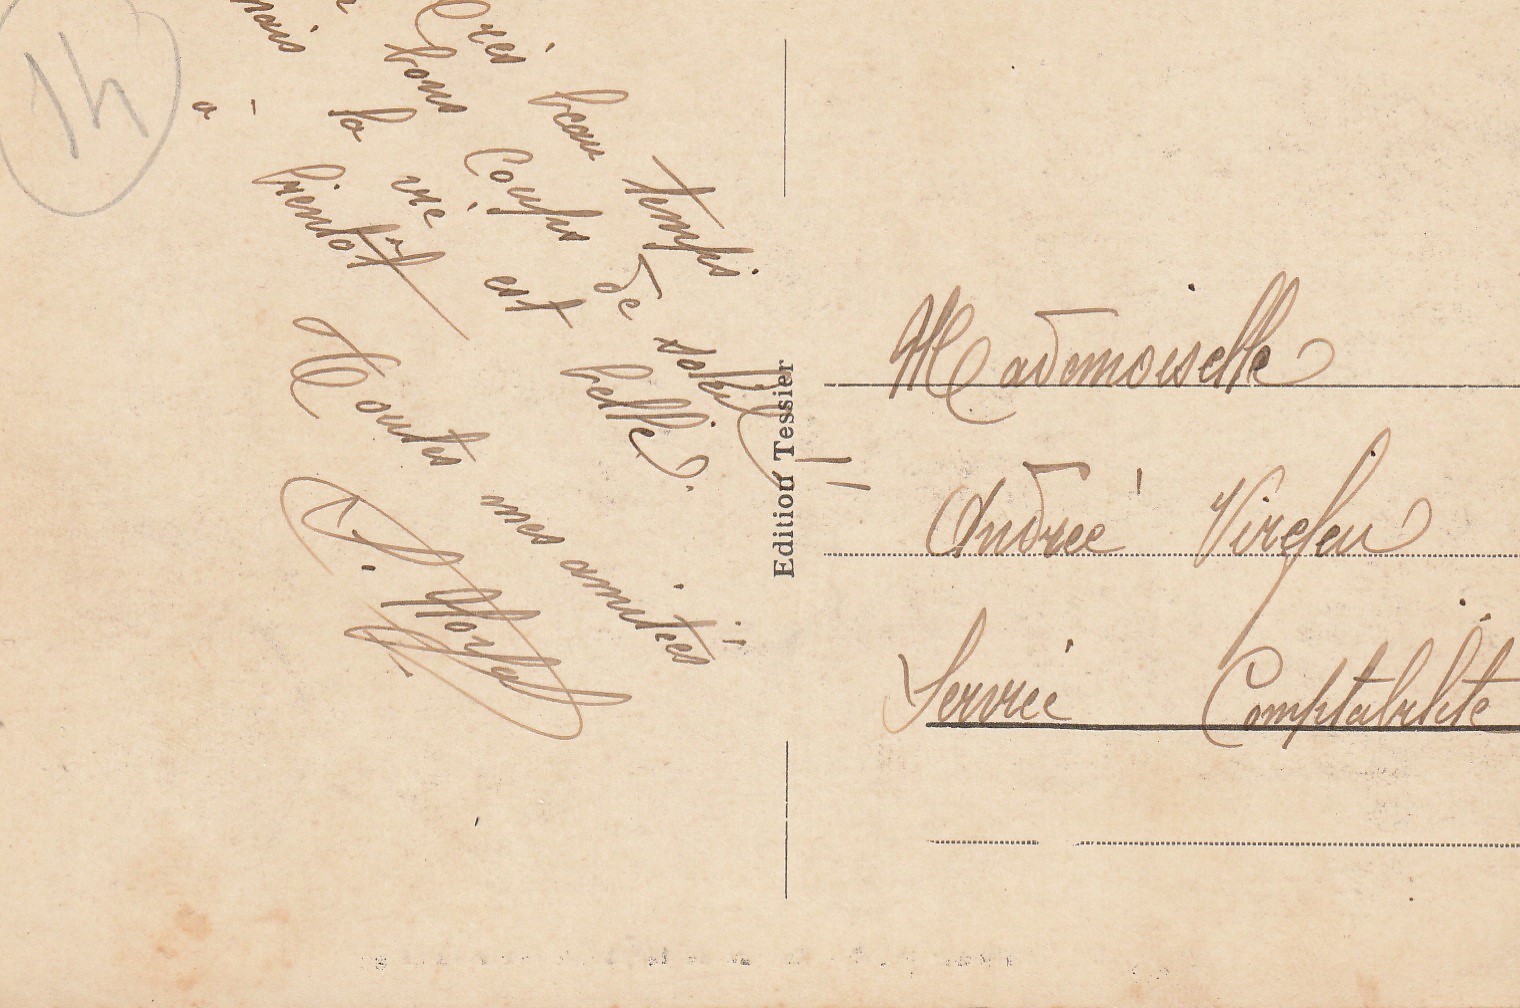 14
Très beau temps
bons coups de soleil !!
mais la vie est belle.
à bientôt
Toutes mes amitiés
Edition Tessier
Mademoiselle
Andrée Virefeu
Service Comptabilité